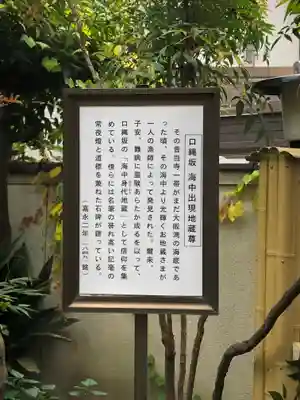 口縄坂 海中出現地蔵尊
その昔当寺一帯がまだ大阪湾の海底であ
った頃、その海中より光輝くお地蔵さまが
一人の漁師によって発見された。爾来、
子安、難病に霊験あらたか成るを以って、
口縄坂の「海中身代地蔵」として信仰を集
めている。傍らには名筆の誉れ高い記竜の
常夜燈と道標を兼ねた石碑が建っている。
（嘉永二年